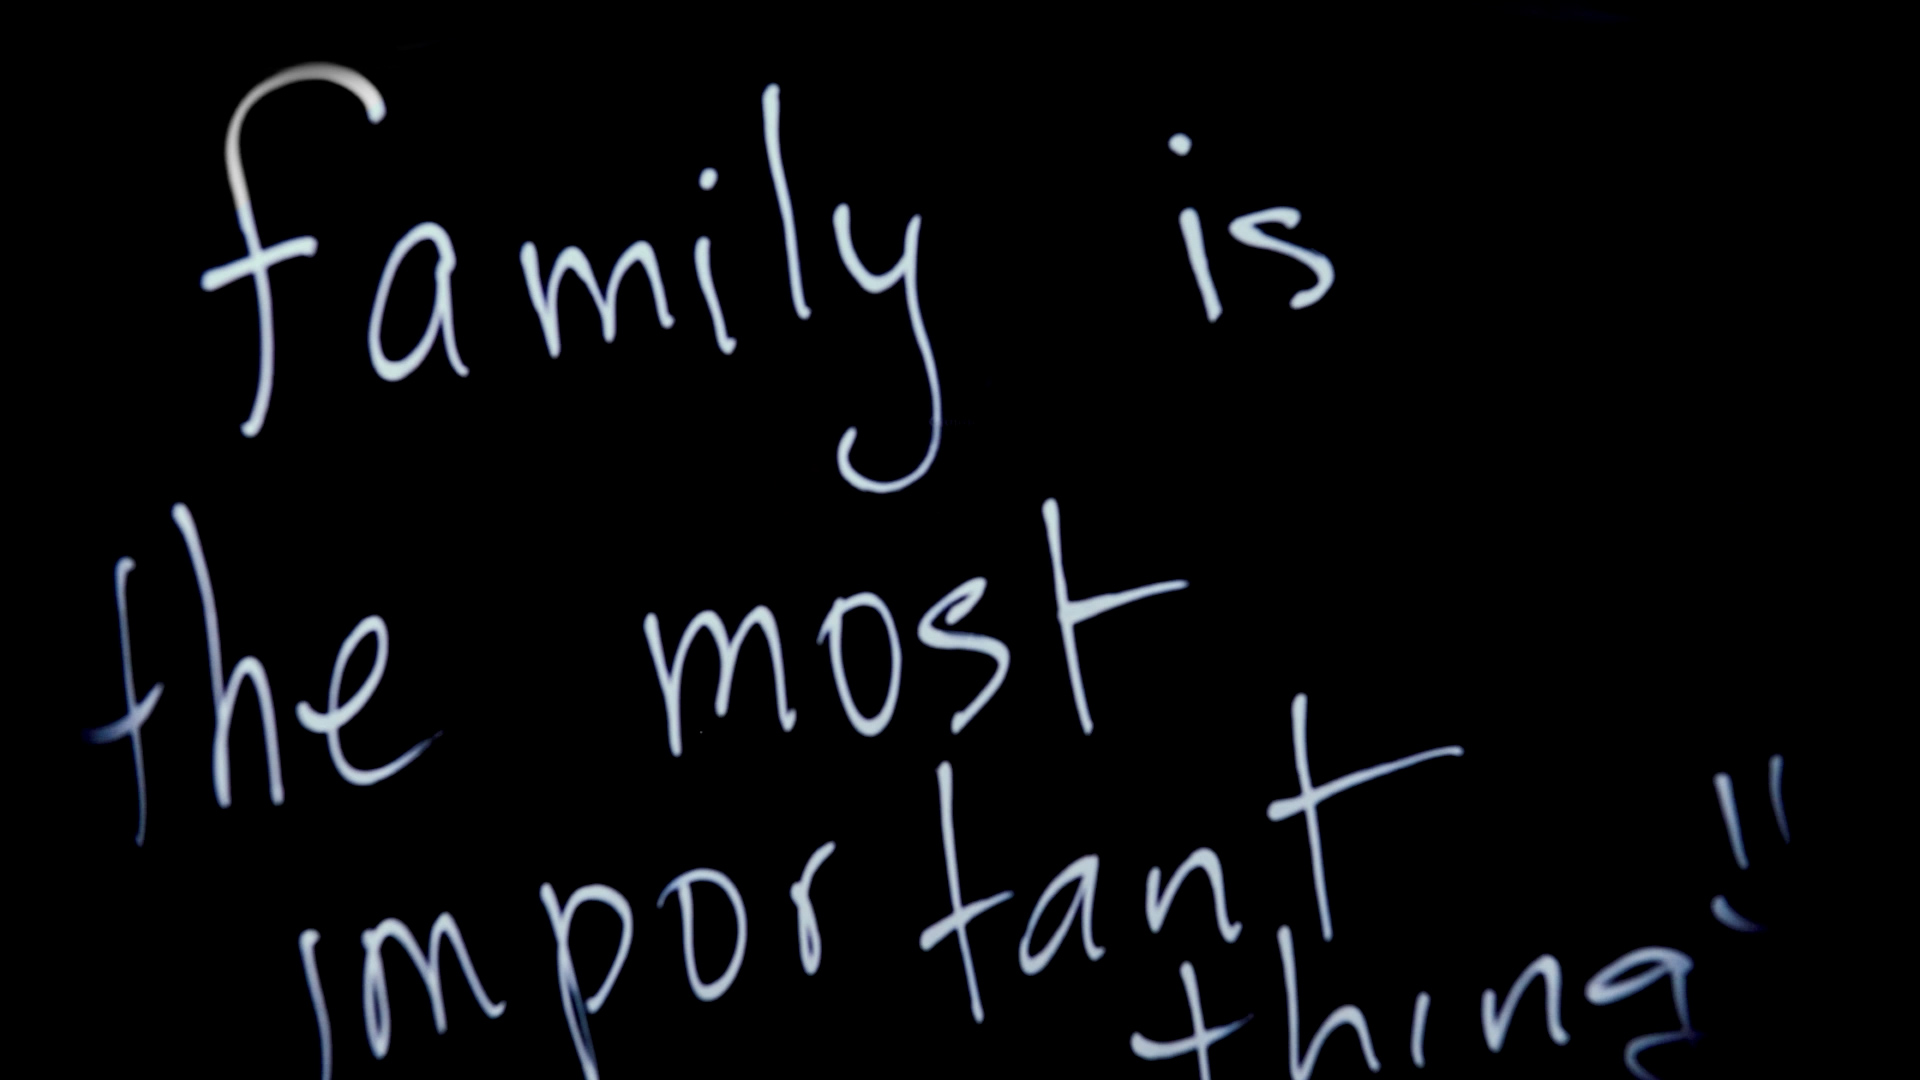 family is
the most
important
thing"